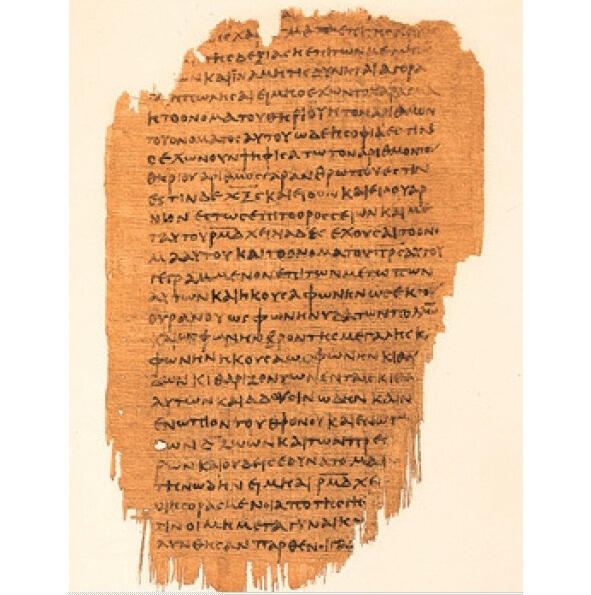 ΧΑΡ ΜΑ ΕΠΙ ΤΗϹ
ΤΗϹ ΔΕΞΙΑϹ Η ΕΠΙ ΤΩΝ ΜΕ
ΩΝ ΚΑΙ ΙΝΑ ΜΗ ΤΙϹ ΔΥΝΗΤΑΙ ΑΓΟΡΑ
Η ΠΩΛΗϹΑΙ ΕΙ ΜΗ Ο ΕΧΩΝ ΤΟ ΧΑΡΑΓΜΑ
Η ΤΟ ΟΝΟΜΑ ΤΟΥ ΘΗΡΙΟΥ Η ΤΟΝ ΑΡΙΘΜΟΝ
ΤΟΥ ΟΝΟΜΑΤΟϹ ΑΥΤΟΥ ΩΔΕ Η ϹΟΦΙΑ ΕϹΤΙΝ
Ο ΕΧΩΝ ΟΥΝ ΨΗΦΙϹΑΤΩ ΤΟΝ ΑΡΙΘΜΟΝ ΤΟΥ
ΘΗΡΙΟΥ ΑΡΙΘΜΟϹ ΓΑΡ ΑΝΘΡΩΠΟΥ ΕϹΤΙΝ
ΕϹΤΙΝ ΔΕ ΧΞϚ ΚΑΙ ΕΙΔΟΝ ΚΑΙ ΕΙΔΟΥ ΑΡ
ΝΙΟΝ ΕϹΤΩϹ ΕΠΙ ΤΟ ΟΡΟϹ ϹΕΙΩΝ ΚΑΙ ΜΕ
Τ ΑΥΤΟΥ ΡΜΔ ΧΕΙΛΙΑΔΕϹ ΕΧΟΥϹΑΙ ΤΟ ΟΝΟ
ΜΑ ΑΥΤΟΥ ΚΑΙ ΤΟ ΟΝΟΜΑ ΤΟΥ ΠΡϹ ΑΥΤΟΥ
ΓΕΓΡΑΜΜΕΝΟΝ ΕΠΙ ΤΩΝ ΜΕΤΩΠΩΝ
ΑΥΤΩΝ ΚΑΙ ΗΚΟΥϹΑ ΦΩΝΗΝ ΩϹ ΕΚ ΤΟΥ
ΟΥΡΑΝΟΥ ΩϹ ΦΩΝΗΝ ΥΔΑΤΩΝ ΠΟΛΛΩ
ΚΑΙ ΩϹ ΦΩΝΗΝ ΒΡΟΝΤΗϹ ΜΕΓΑΛΗϹ Κ
ΦΩΝΗΝ ΗΚΟΥϹΑ ΩϹ ΦΩΝΗΝ ΚΙΘΑ
ΔΩΝ ΚΙΘΑΡΙΖΟΝΤΩΝ ΕΝ ΤΑΙϹ ΚΙΘ
ΑΥΤΩΝ ΚΑΙ ΑΔΟΥϹΙΝ ΩΔΗΝ ΚΑΙΝ
ΕΝΩΠΙΟΝ ΤΟΥ ΘΡΟΝΟΥ ΚΑΙ ΕΝΩΠ
ΤΩΝ Δ ΖΩΩΝ ΚΑΙ ΤΩΝ ΠΡΕϹ
ΡΩΝ ΚΑΙ ΟΥΔΕΙϹ ΕΔΥΝΑΤΟ ΜΑ
ΤΗΝ ΩΔΗΝ ΕΙ ΜΗ ΑΙ ΡΜΔ ΧΕΙ
ΟΙ ΗΓΟΡΑϹΜΕΝΟΙ ΑΠΟ ΤΗϹ ΓΗϹ
ΤΙΝ ΟΙ ΜΗ ΜΕΤΑ ΓΥΝΑΙΚ
ΛΥΝΘΗϹΑΝ ΠΑΡΘΕΝΟΙ ΓΑ